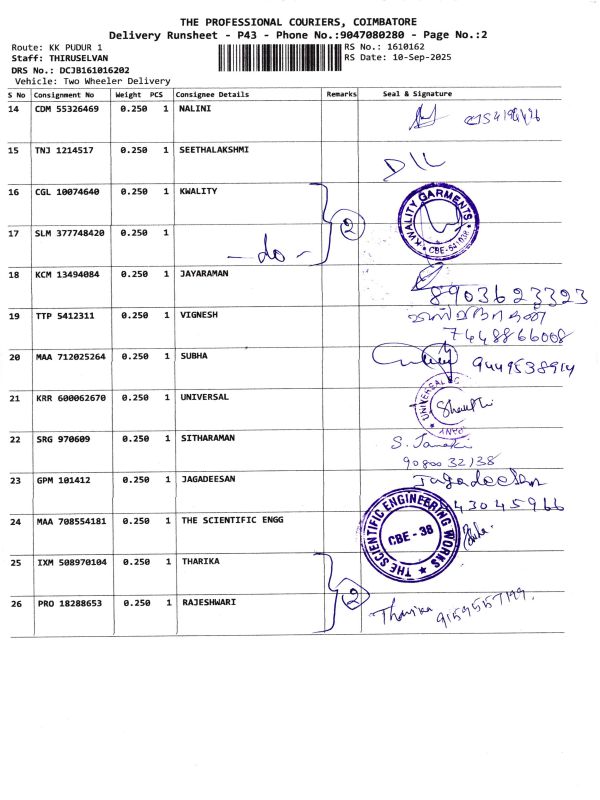 THE PROFESSIONAL COURIERS, COIMBATORE
Delivery Runsheet - P43 - Phone No.:9047080280 - Page No.:2
Route: KK PUDUR 1 RS No.: 1610162
Staff: THIRUSELVAN RS Date: 10-Sep-2025
DRS No.: DCJB161016202
Vehicle: Two Wheeler Delivery
S No Consignment No Weight PCS Consignee Details Remarks Seal & Signature
14 CDM 55326469 0.250 1 NALINI
15 TNJ 1214517 0.250 1 SEETHALAKSHMI
16 CGL 10074640 0.250 1 KWALITY 2 KWALITY GARMENTS CBE-641038
17 SLM 377748420 0.250 1 - do -
18 KCM 13494084 0.250 1 JAYARAMAN
8903623323
19 TTP 5412311 0.250 1 VIGNESH
7448866008
20 MAA 712025264 0.250 1 SUBHA 9449538914
21 KRR 600062670 0.250 1 UNIVERSAL UNIVERSAL
22 SRG 970609 0.250 1 SITHARAMAN S. Janaki
9080032138
23 GPM 101412 0.250 1 JAGADEESAN Jagadeesan
43045966
24 MAA 708554181 0.250 1 THE SCIENTIFIC ENGG THE SCIENTIFIC ENGINEERING WORKS CBE - 38
25 IXM 508970104 0.250 1 THARIKA 2
26 PRO 18288653 0.250 1 RAJESHWARI Tharika